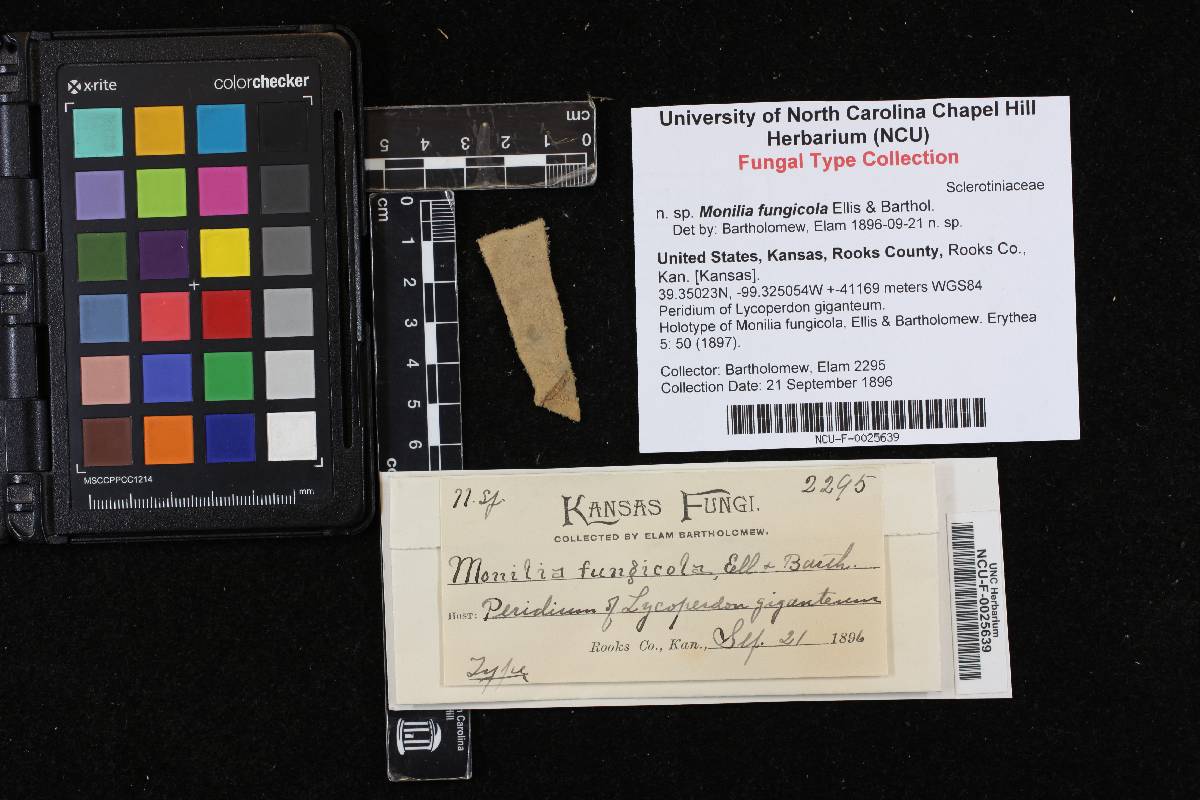 x-rite
colorchecker
MSCCPPCC1214
mm
cm
5 4 3 2 1 0
cm
0
1
2
3
4
5
6
University of North Carolina Chapel Hill
Herbarium (NCU)
Fungal Type Collection
Sclerotiniaceae
n. sp. Monilia fungicola Ellis & Barthol.
Det by: Bartholomew, Elam 1896-09-21 n. sp.
United States, Kansas, Rooks County, Rooks Co.,
Kan. [Kansas].
39.35023N, -99.325054W +-41169 meters WGS84
Peridium of Lycoperdon giganteum.
Holotype of Monilia fungicola. Ellis & Bartholomew. Erythea
5: 50 (1897).
Collector: Bartholomew, Elam 2295
Collection Date: 21 September 1896
NCU-F-0025639
n. sp. 2295
KANSAS FUNGI.
COLLECTED BY ELAM BARTHOLOMEW.
Monilia fungicola, Ell & Barth.
HOST: Peridium of Lycoperdon giganteum
Rooks Co., Kan., Sep. 21 1896
Type
UNC Herbarium
NCU-F-0025639
Carolina
Hill